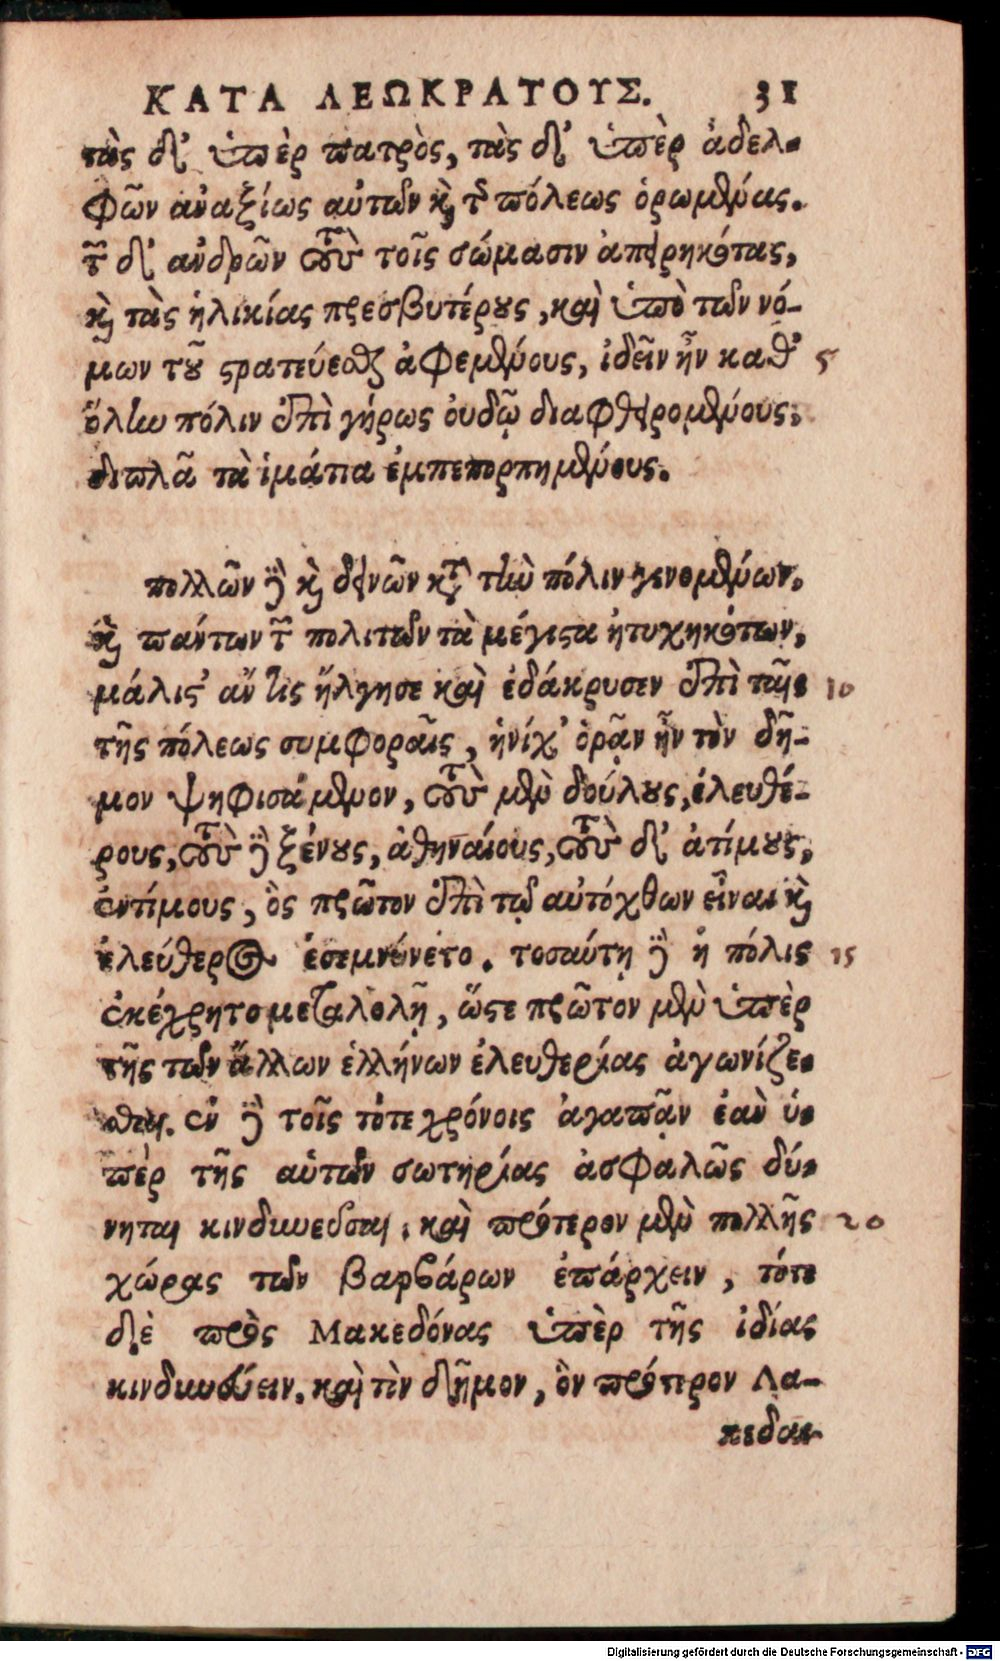 ΚΑΤΑ ΛΕΩΚΡΑΤΟΥΣ. 31
τὰς δ' ὑπὲρ πατρὸς, τὰς δ' ὑπὲρ ἀδελ-
φῶν ἀναξίως αὑτῶν κὶ τῆς πόλεως ὁρωμένας.
τῶν δ' ἀνδρῶν τοὺς τοῖς σώμασιν ἀπειρηκότας,
κὶ τὰς ἡλικίας πρεσβυτέρους, καὶ ὑπὸ τῶν νό-
μων τοῦ στρατεύεσθαι ἀφεμένους, ἰδεῖν ἦν καθ' 5
ὅλην πόλιν ἐπὶ γήρως οὐδῷ διαφθειρομένους,
διπλᾶ τὰ ἱμάτια ἐμπεπορπημένους.
πολλῶν δὲ κὶ δεινῶν κατὰ τὴν πόλιν γενομένων,
κὶ πάντων τῶν πολιτῶν τὰ μέγιστα ἠτυχηκότων,
μάλιστ' ἄν τις ἤλγησε καὶ ἐδάκρυσεν ἐπὶ ταῖς 10
τῆς πόλεως συμφοραῖς, ἡνίχ' ὁρᾷν ἦν τὸν δῆ-
μον ψηφισάμενον, τοὺς μὲν δούλους, ἐλευθέ-
ρους, τοὺς δὲ ξένους, ἀθηναίους, τοὺς δ' ἀτίμους,
ἐντίμους, ὃς πρῶτον ἐπὶ τῷ αὐτόχθων εἶναι κὶ
ἐλεύθερος ἐσεμνύνετο. τοσαύτῃ δὲ ἡ πόλις 15
ἐκέχρητο μεταβολῇ, ὥστε πρῶτον μὲν ὑπὲρ
τῆς τῶν ἄλλων ἑλλήνων ἐλευθερίας ἀγωνίζε-
σθαι. ἐν δὲ τοῖς τότε χρόνοις ἀγαπᾷν ἐὰν ὑ-
πὲρ τῆς αὑτῶν σωτηρίας ἀσφαλῶς δύ-
νηται κινδυνεῦσαι. καὶ πρότερον μὲν πολλῆς 20
χώρας τῶν βαρβάρων ἐπάρχειν, τότε
δὲ πρὸς Μακεδόνας ὑπὲρ τῆς ἰδίας
κινδυνεύειν. καὶ τὸν δῆμον, ὃν πρότερον Λα-
κεδαι-
Digitalisierung gefördert durch die Deutsche Forschungsgemeinschaft - DFG